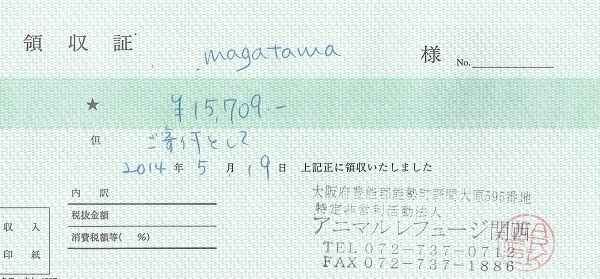 領収証 magatama 様 No.
★ ¥15,709.-
但 ご寄付として
2014年5月19日 上記正に領収いたしました
内訳
税抜金額
消費税額等( %)
収入
印紙
大阪府豊能郡能勢町野間大原595番地
特定非営利活動法人
アニマルレフュージ関西
TEL 072-737-0712
FAX 072-737-1886